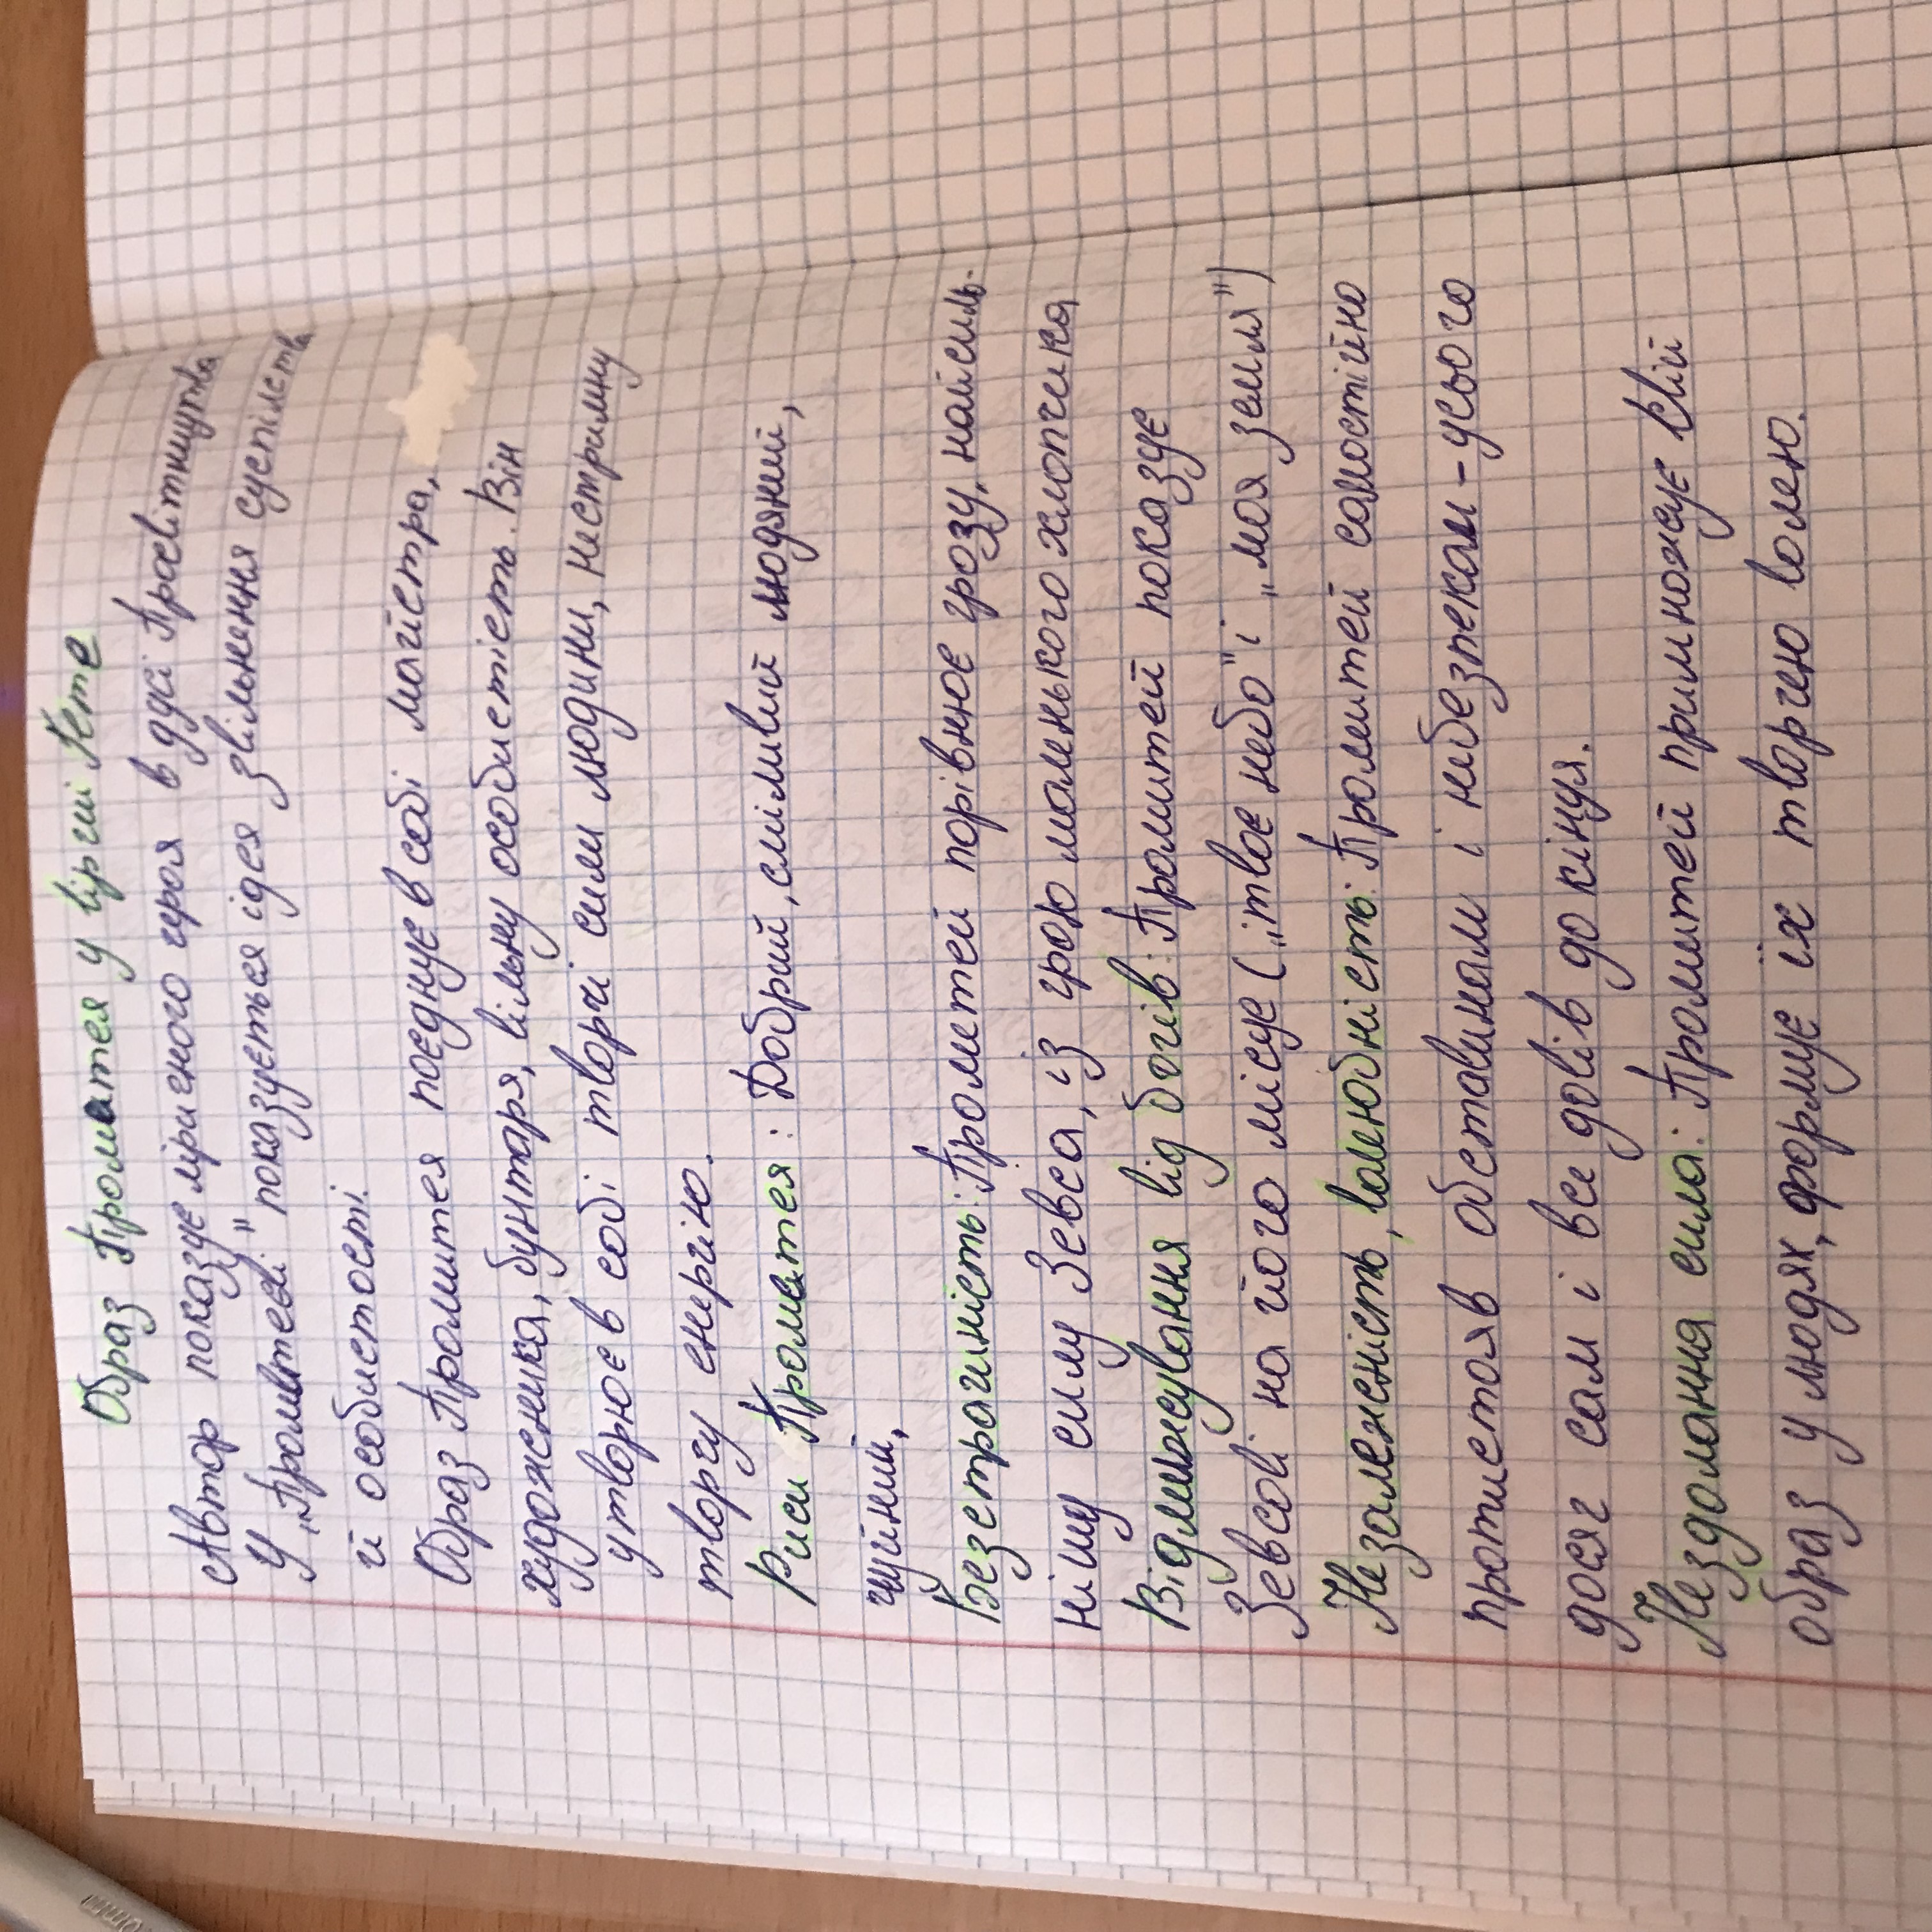 Образ Прометея у вірші Гете
Автор показує міфічного героя в дусі Просвітництва
У „Прометеєві" показується ідея звільнення суспільства
й особистості.
Образ Прометея поєднує в собі майстра,
художника, бунтаря, вільну особистість. Він
утворює в собі творчі сили людини, нестримну
творчу енергію.
Риси Прометея: Добрий, сміливий людяний,
чуйний,
Безстрашність: Прометей порівнює грозу, найсиль-
нішу силу Зевса, із грою маленького хлопчика
Відмежування від богів: Прометей показує
Зевсові на його місце („твоє небо" і „моя земля")
Незалежність, волелюбність: Прометей самостійно
протистояв обставинам і небезпекам - усього
досяг сам і все довів до кінця.
Нездоланна сила: Прометей примножує свій
образ у людях, формує їх творчою волею.